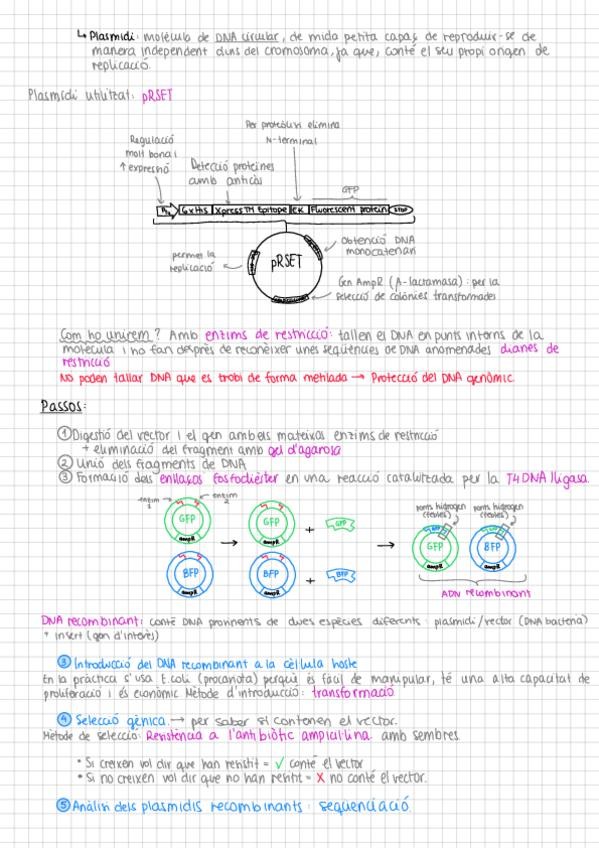 ↳ Plasmidi: molècula de DNA circular, de mida petita capaç de reproduir-se de
manera independent dins del cromosoma, ja que, conté el seu propi origen de
replicació.
Plasmidi utilitzat: pRSET
Per proteòlisi elimina
N-terminal
Regulació
molt bona i
↑ expressió
Detecció proteïnes
amb anticòs
GFP
6xHis Xpress TM Epitope EK Fluorescent protein STOP
pRSET
permet la
replicació
Obtenció DNA
monocatenari
Gen AmpR (β-lactamasa): per la
selecció de colònies transformades
Com ho unirem? Amb enzims de restricció: tallen el DNA en punts interns de la
molècula i ho fan després de reconèixer unes seqüències de DNA anomenades dianes de
restricció
NO poden tallar DNA que es trobi de forma metilada → Protecció del DNA genòmic.
Passos:
① Digestió del vector i el gen amb els mateixos enzims de restricció
+ eliminació del fragment amb gel d'agarosa
② Unió dels fragments de DNA
③ Formació dels enllaços fosfodièster en una reacció catalitzada per la T4 DNA lligasa.
enzim 1
enzim 2
GFP
ampR
GFP
ampR
+
GFP
ponts hidrogen
(febles)
ponts hidrogen
(febles)
GFP
GFP
ampR
BFP
BFP
ampR
BFP
ampR
BFP
ampR
+
BFP
ADN recombinant
DNA recombinant: conté DNA provinents de dues espècies diferents: plasmidi/vector (DNA bacterià)
+ insert (gen d'interès)
③ Introducció del DNA recombinant a la cèl·lula hoste
En la pràctica s'usa E.coli (procariota) perquè és fàcil de manipular, té una alta capacitat de
proliferació i és econòmic Mètode d'introducció: transformació
④ Selecció gènica. → per saber si contenen el vector.
Mètode de selecció: Resistència a l'antibiòtic ampicil·lina amb sembres
* Si creixen vol dir que han resistit = ✓ conté el vector
* Si no creixen vol dir que no han resistit = X no conté el vector.
⑤ Anàlisi dels plasmidis recombinants: seqüenciació.